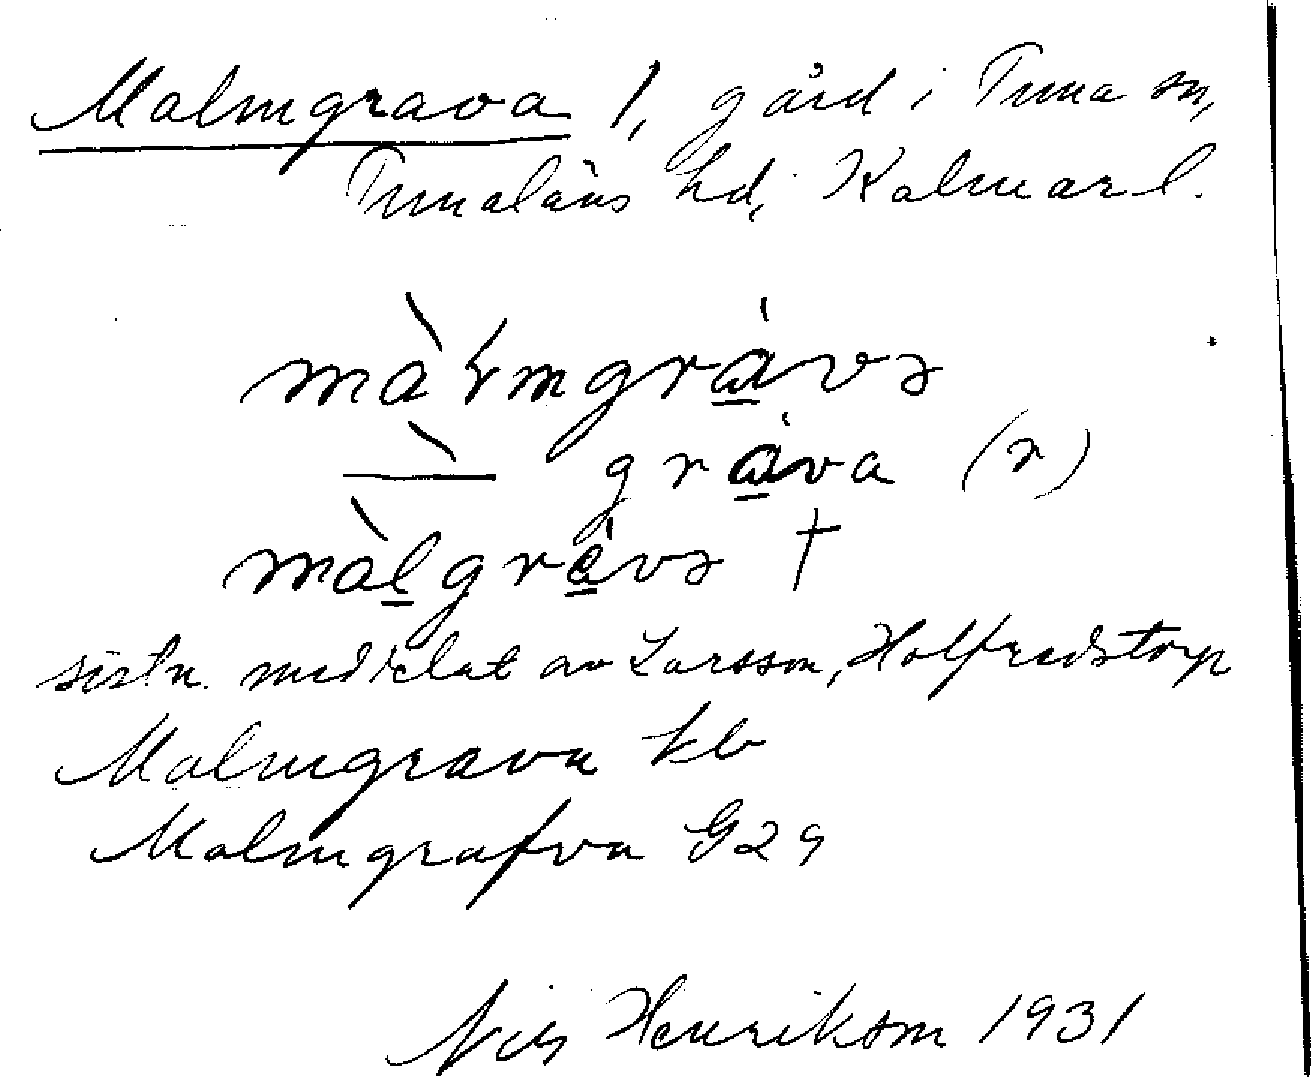 Malmgrava 1, gård i Tuna sn,
Tunaläns hd, Kalmar l.
màɽmgrávə
— gráva (r)
màlgrávə †
sistn. meddelat av Larsson, Hol­fredstorp
Malmgrava kb
Malmgrafva G29
Nils Henrikson 1931